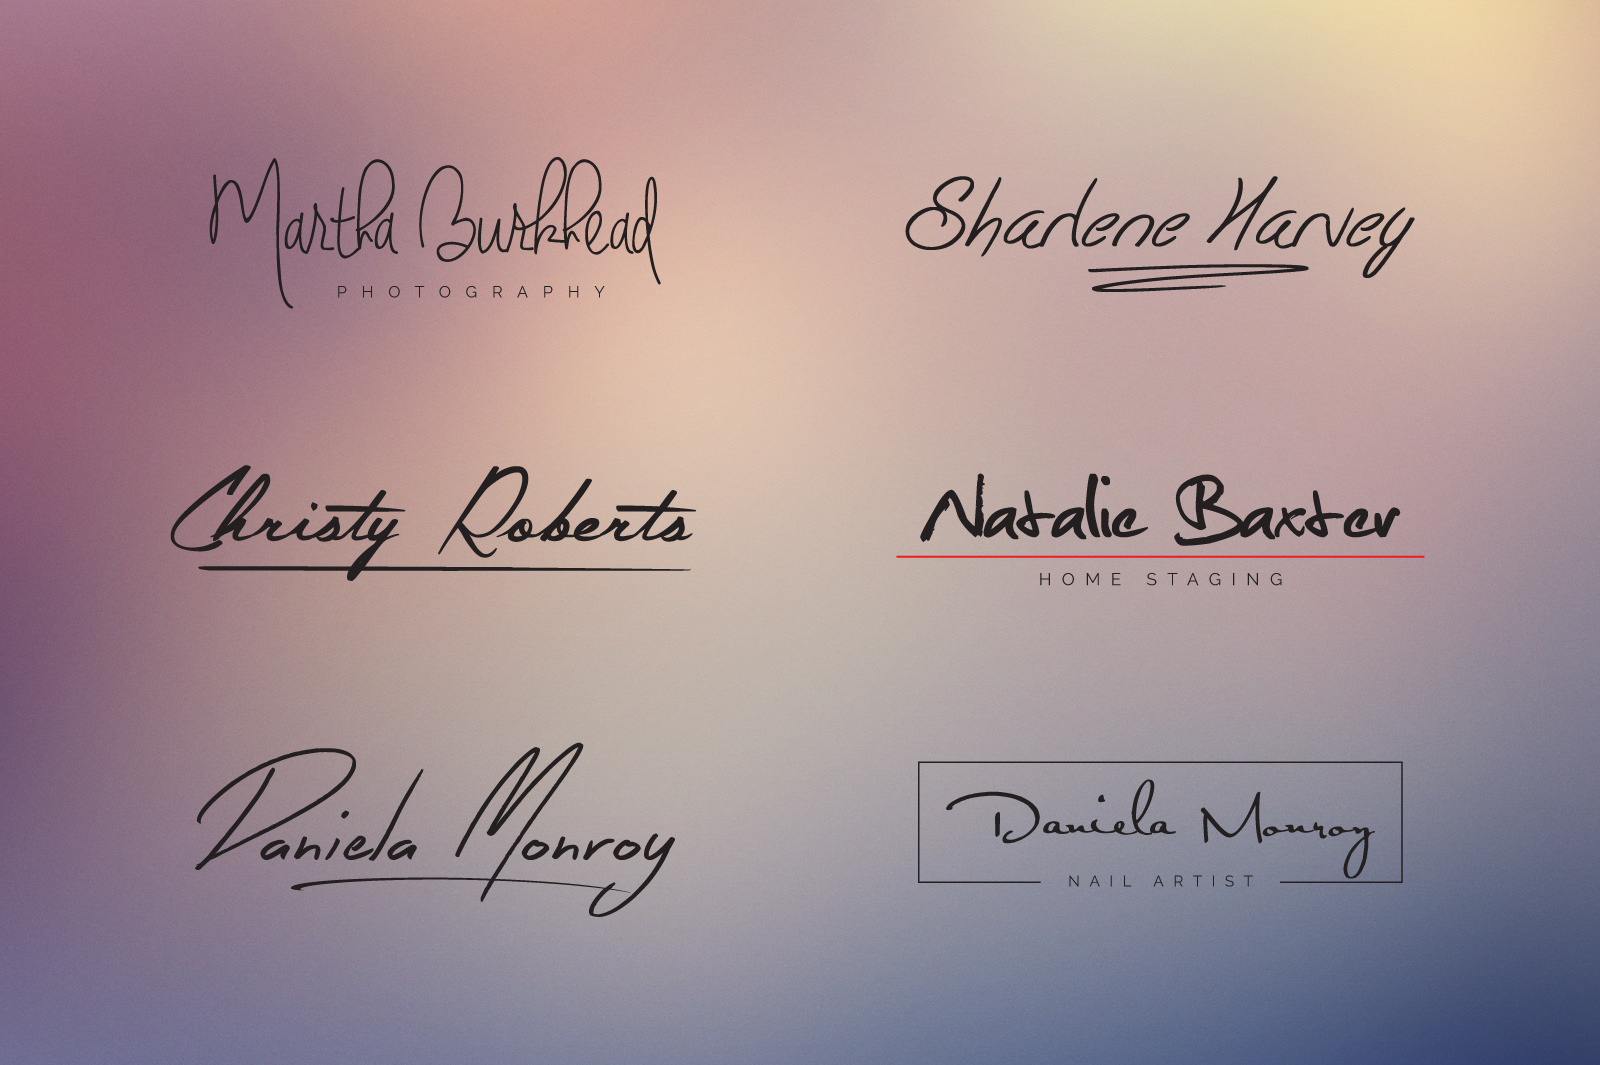 Martha Burkhead
PHOTOGRAPHY
Sharlene Harvey
Christy Roberts
Natalie Baxter
HOME STAGING
Daniela Monroy
Daniela Monroy
NAIL ARTIST